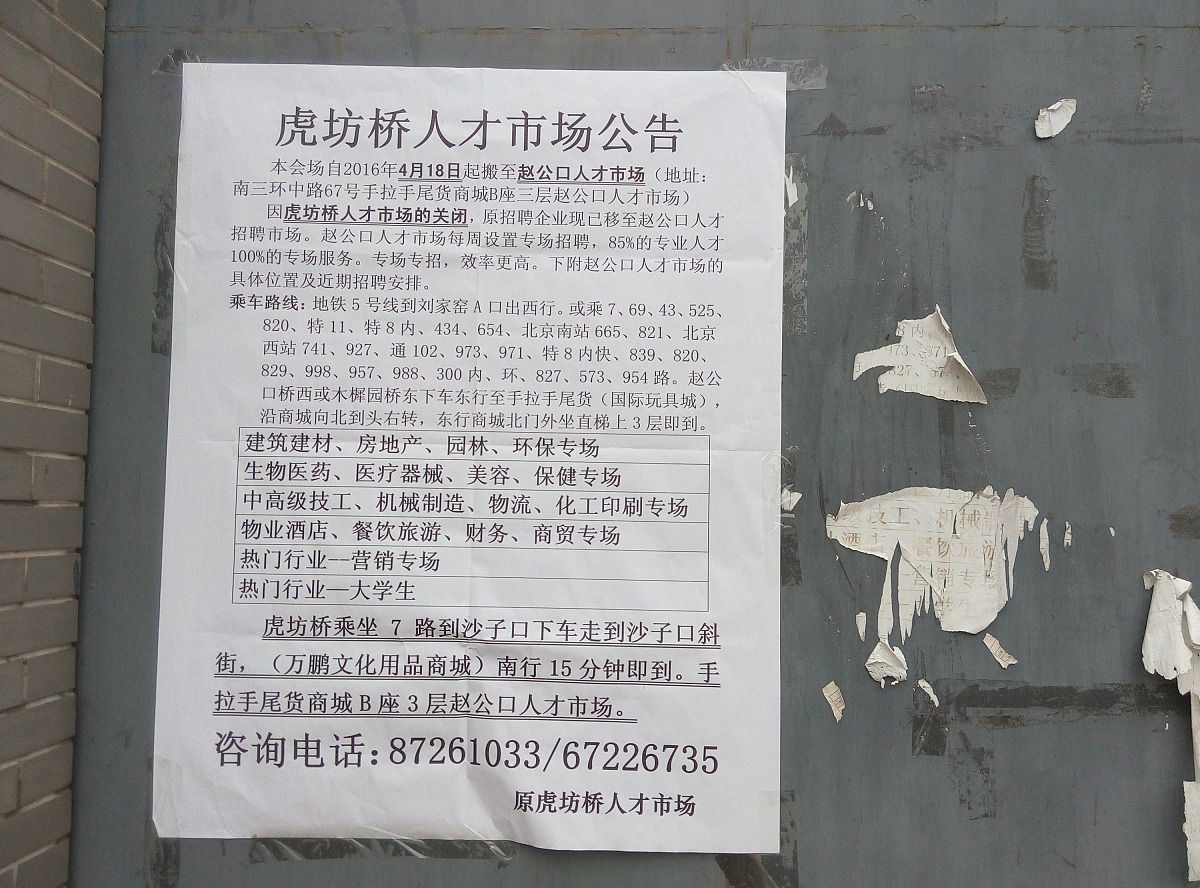 虎坊桥人才市场公告
本会场自2016年4月18日起搬至赵公口人才市场（地址：
南三环中路67号手拉手尾货商城B座三层赵公口人才市场）
因虎坊桥人才市场的关闭，原招聘企业现已移至赵公口人才
招聘市场。赵公口人才市场每周设置专场招聘，85%的专业人才
100%的专场服务。专场专招，效率更高。下附赵公口人才市场的
具体位置及近期招聘安排。
乘车路线：地铁5号线到刘家窑A口出西行。或乘7、69、43、525、
820、特11、特8内、434、654、北京南站665、821、北京
西站741、927、通102、973、971、特8内快、839、820、
829、998、957、988、300内、环、827、573、954路。赵公
口桥西或木樨园桥东下车东行至手拉手尾货（国际玩具城），
沿商城向北到头右转，东行商城北门外坐直梯上3层即到。
建筑建材、房地产、园林、环保专场
生物医药、医疗器械、美容、保健专场
中高级技工、机械制造、物流、化工印刷专场
物业酒店、餐饮旅游、财务、商贸专场
热门行业--营销专场
热门行业—大学生
虎坊桥乘坐 7 路到沙子口下车走到沙子口斜
街，（万鹏文化用品商城）南行15分钟即到。手
拉手尾货商城B座3层赵公口人才市场。
咨询电话：87261033/67226735
原虎坊桥人才市场
8内
973、971
827、57
技工、机械制
酒店、餐饮旅游
营销专场